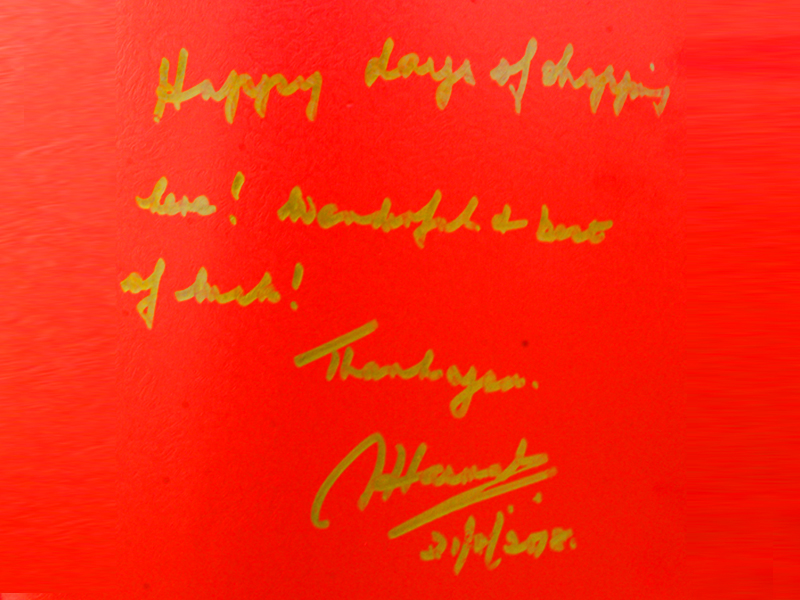 Happy days of shopping
here! Wonderful & best
of luck!
Thank you.